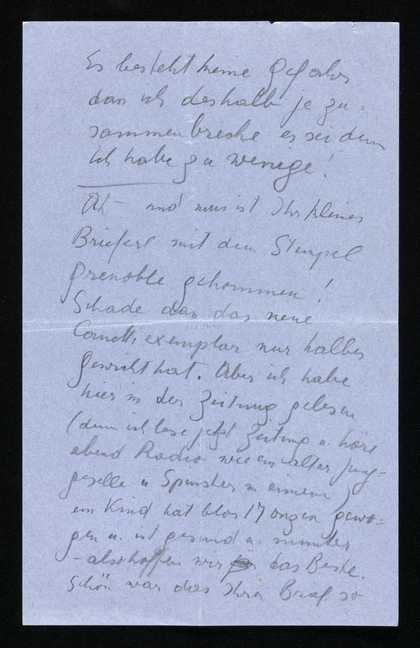 Es besteht keine Gefahr
dass ich deshalb je zu-
sammenbreche es sei denn
ich habe zu wenige!
Ah – und nun ist Ihr kleines
Brieferl mit dem Stempel
Grenoble gekommen!
Schade dass das neue
exemplar nur halbes
Gewicht hat. Aber ich habe
hier in der Zeitung gelesen
(denn ich lese jetzt Zeitung u. höre
abend Radio wie ein alter Jung-
geselle u Spinster in einem)
ein Kind hat blos 17 onzen gewo-
gen u. ist gesund u. munter
– also hoffen wir das Beste.
Schön war dass Ihr Brief so